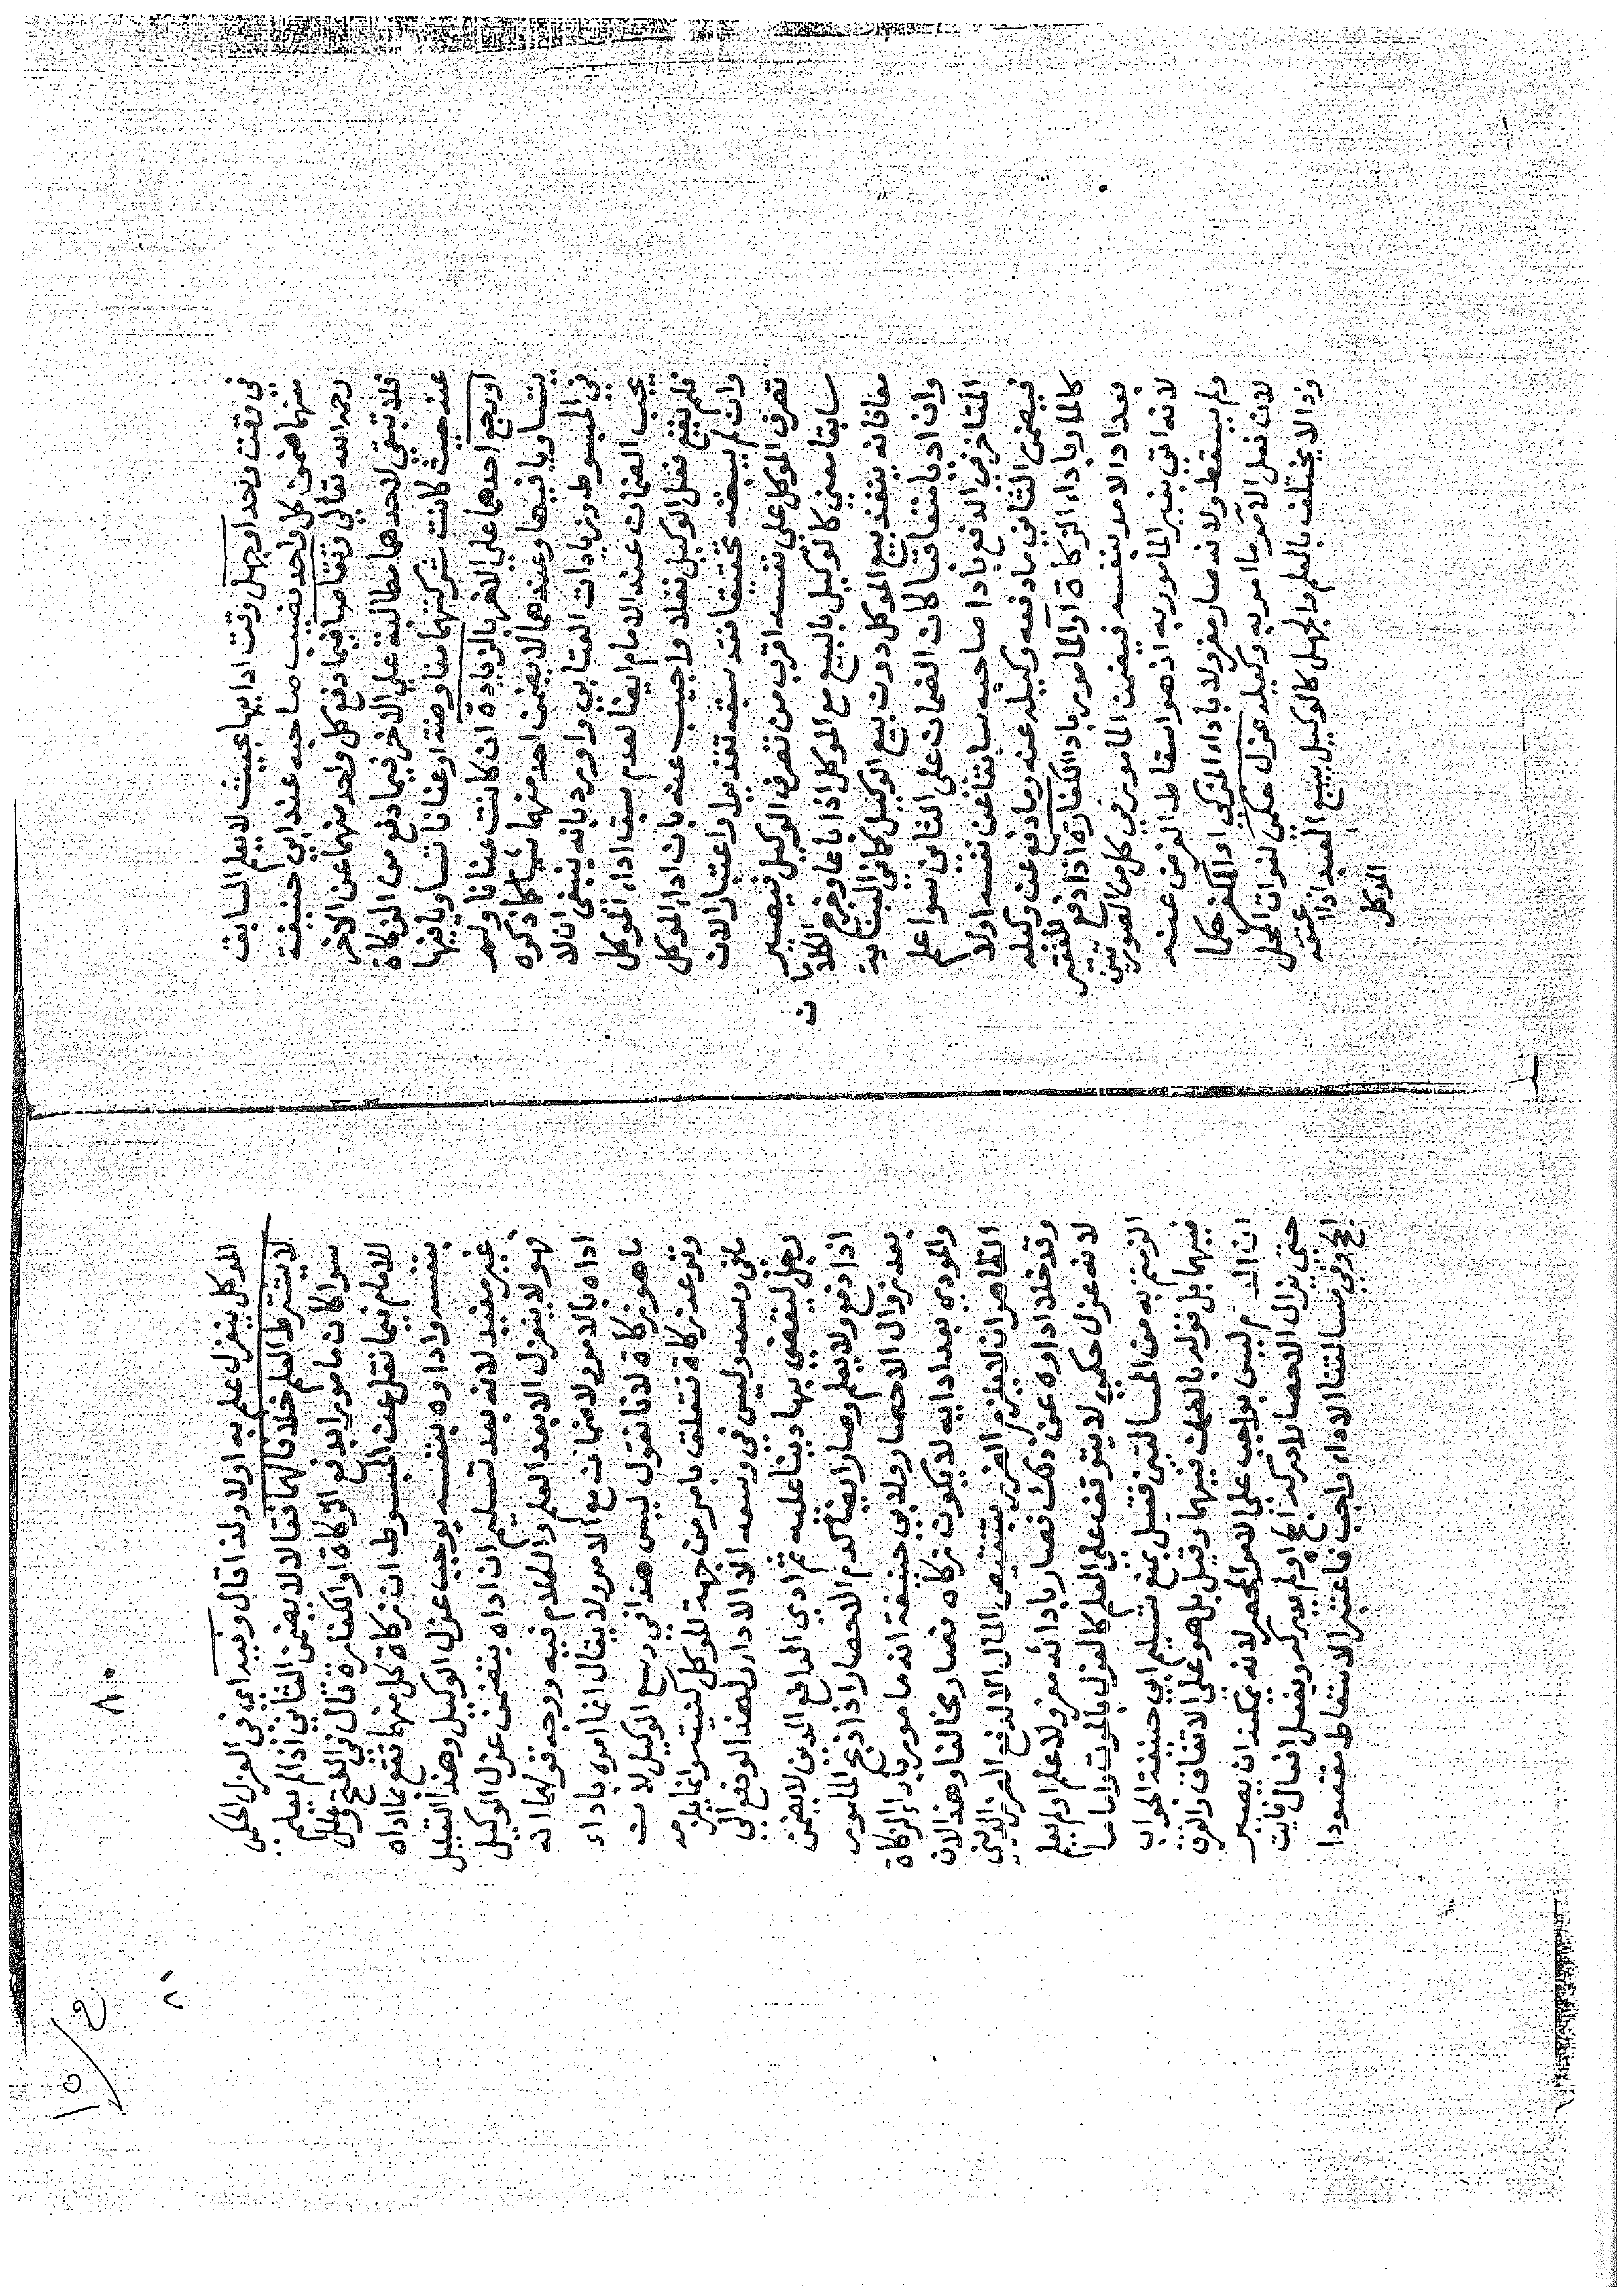 في وقت واحد او جهل وقت ادايهما بحيث لا يعلم السابق
منهما ضمن كل واحد نصيب صاحبه عند ابي حنيفة
رحمه الله تعالي وتقاصا فيما دفع كل واحد منهما عن الاخر
فلا تبقي لاحدهما مطالبة علي الاخر فيما دفع من الزكاة
عنه حيث كانت شركتهما مفاوضة او عنانا تساويا فيها
او رجع احدهما علي الاخر بالزيادة ان كانت عنانا ولم
يتساويا فيها وعندهما لا يضمن احد منهما شيا كما ذكره
في المبسوط وزيادات العتابي واورد بانه ينبغي ان لا
يجب الضمان عند الامام ايضا لعدم سبق اداء الموكل
فلم يقع فعل الوكيل نفلا واجيب عنه بان اداء الموكل
وان لم يسبقه تحقيقا فقد سبقه تقديرا واعتبارا لان
تصرف الموكل علي نفسه اقرب من تصرف الوكيل فيصير
سابقا معني كالوكيل بالبيع مع الموكل اذا باعا وخرج الكلامان
معا فانه ينفذ بيع الموكل دون بيع الوكيل كما في البناية
وان اديا متعاقبا كان الضمان علي الثاني سوا علم
المتاخر في الدفع باداء صاحبه سابقا عن نفسه اولا
فيضمن الثاني ما دفعه وكيله عنه وما دفع عن وكيله
كالمامور باداء الزكاة او المامور باداء الكفارة اذا دفع للفقير
بعد اداء الامر بنفسه فيضمن المامور في كل من الصورتين
لانه اتي بغير المامور به اذ هو اسقاط الفرض عنه
ولم يسقط ولانه صار معزولا باداء المزكي او المكفر حكما
لان فعل الآمر ما امر به وكيله عزل حكمي لفوات المحل
وذا لا يختلف بالعلم والجهل كالوكيل ببيع العبد اذا عتقه
الموكل
٨٠
الموكل ينعزل علم به اولا ولذا قال وفيه اي في العزل الحكمي
لا يشترط العلم خلافا لهما فقالا لا يضمن الثاني اذا لم يعلم
سوا كان مامورا بدفع الزكاة او الكفارة قال في الفتح وعلل
للامام فيما نقل عن المبسوط ان زكاة كل منهما تقع بما اداه
بنفسه واداوه بنفسه يوجب عزل الوكيل وهذا التعليل
غير مفيد لانه بعد تسليم ان اداه يتضمن عزل الوكيل
فهو لا ينعزل الا بعد العلم والكلام فيه ووجه قولهما انه
اداه بالامر ولا ضمان مع الامر ولا يقال انما امره باداء
ما هو زكاة لانا نقول ليس هذا في وسع الوكيل لان
وقوعه زكاة تتعلق بامر من جهة الموكل كنيته وانما يلزمه
ما في وسعه وليس في وسعه الا الاداء لهذا لو دفع الي
رجل ليقضي بها دينا عليه ثم ادي الدافع الدين لا يضمن
اذا دفع ولا يعلم وصار ايضا كدم الاحصار اذا ذبح المامور
بعد زوال الاحصار ولابي حنيفة انه مامور باداء الزكاة
والمودي بعد ادايه لا يكون زكاه فصار مخالفا وهذا لان
الظاهر ان لا يلتزم الضرر بتنقيص المال الا لدفع الضرر الديني
وقد خلا اداوه عن ذلك فصار بادائه معزولا علم او لم يعلم
لانه عزل حكمي لا يتوقف علي العلم كالعزل بالموت واما ما
الزمتم به من المسالتين فقيل بمنع تسليم ابي حنيفة الجواب
فيهما بل قوله بالضمان فيهما وقيل بل هو علي الاتفاق والفرق
ان الدم ليس بواجب علي الامر المحصر لانه يمكنه ان يصبر
حتي يزال الاحصار لادرك الحج او لم يدرك ويفعل افعال فايت
الحج وفي مسالتنا الاداء واجب فاعتبر الاسقاط مقصودا